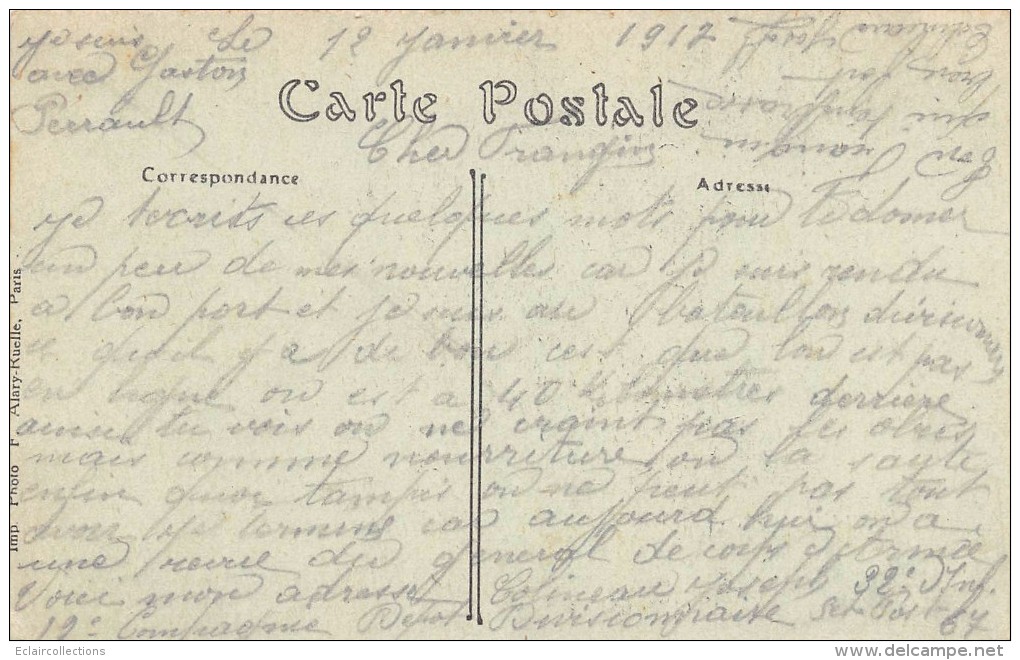 Le 12 Janvier 1917
je suis
avec Gaston
Perrault
Carte Postale
Cher Frangin
Correspondance
Adresse
je tecrits ces quelques mots pour te donner
un peu de mes nouvelles car je suis rendu
a bon port et je suis au bataillon divisionnaire
ce quil y a de bon cest que lon est pas
en ligne on est a 40 kilometres derriere
ainsi tu vois on ne craint pas les obus
mais comme nourriture on la saute
enfin quoi tampis on ne peut pas tout
avoir je termine car aujourd hui on a
une revue du general de corps d'Armée
Voici mon adresse Colineau Joseph 32e Inf.
12e Compagnie Depot Divisionnaire Sect Post 67
Ton
qui
Colineau Joseph
Imp. Photo F. Alary-Ruelle, Paris
Eclaircollections
www.delcampe.net